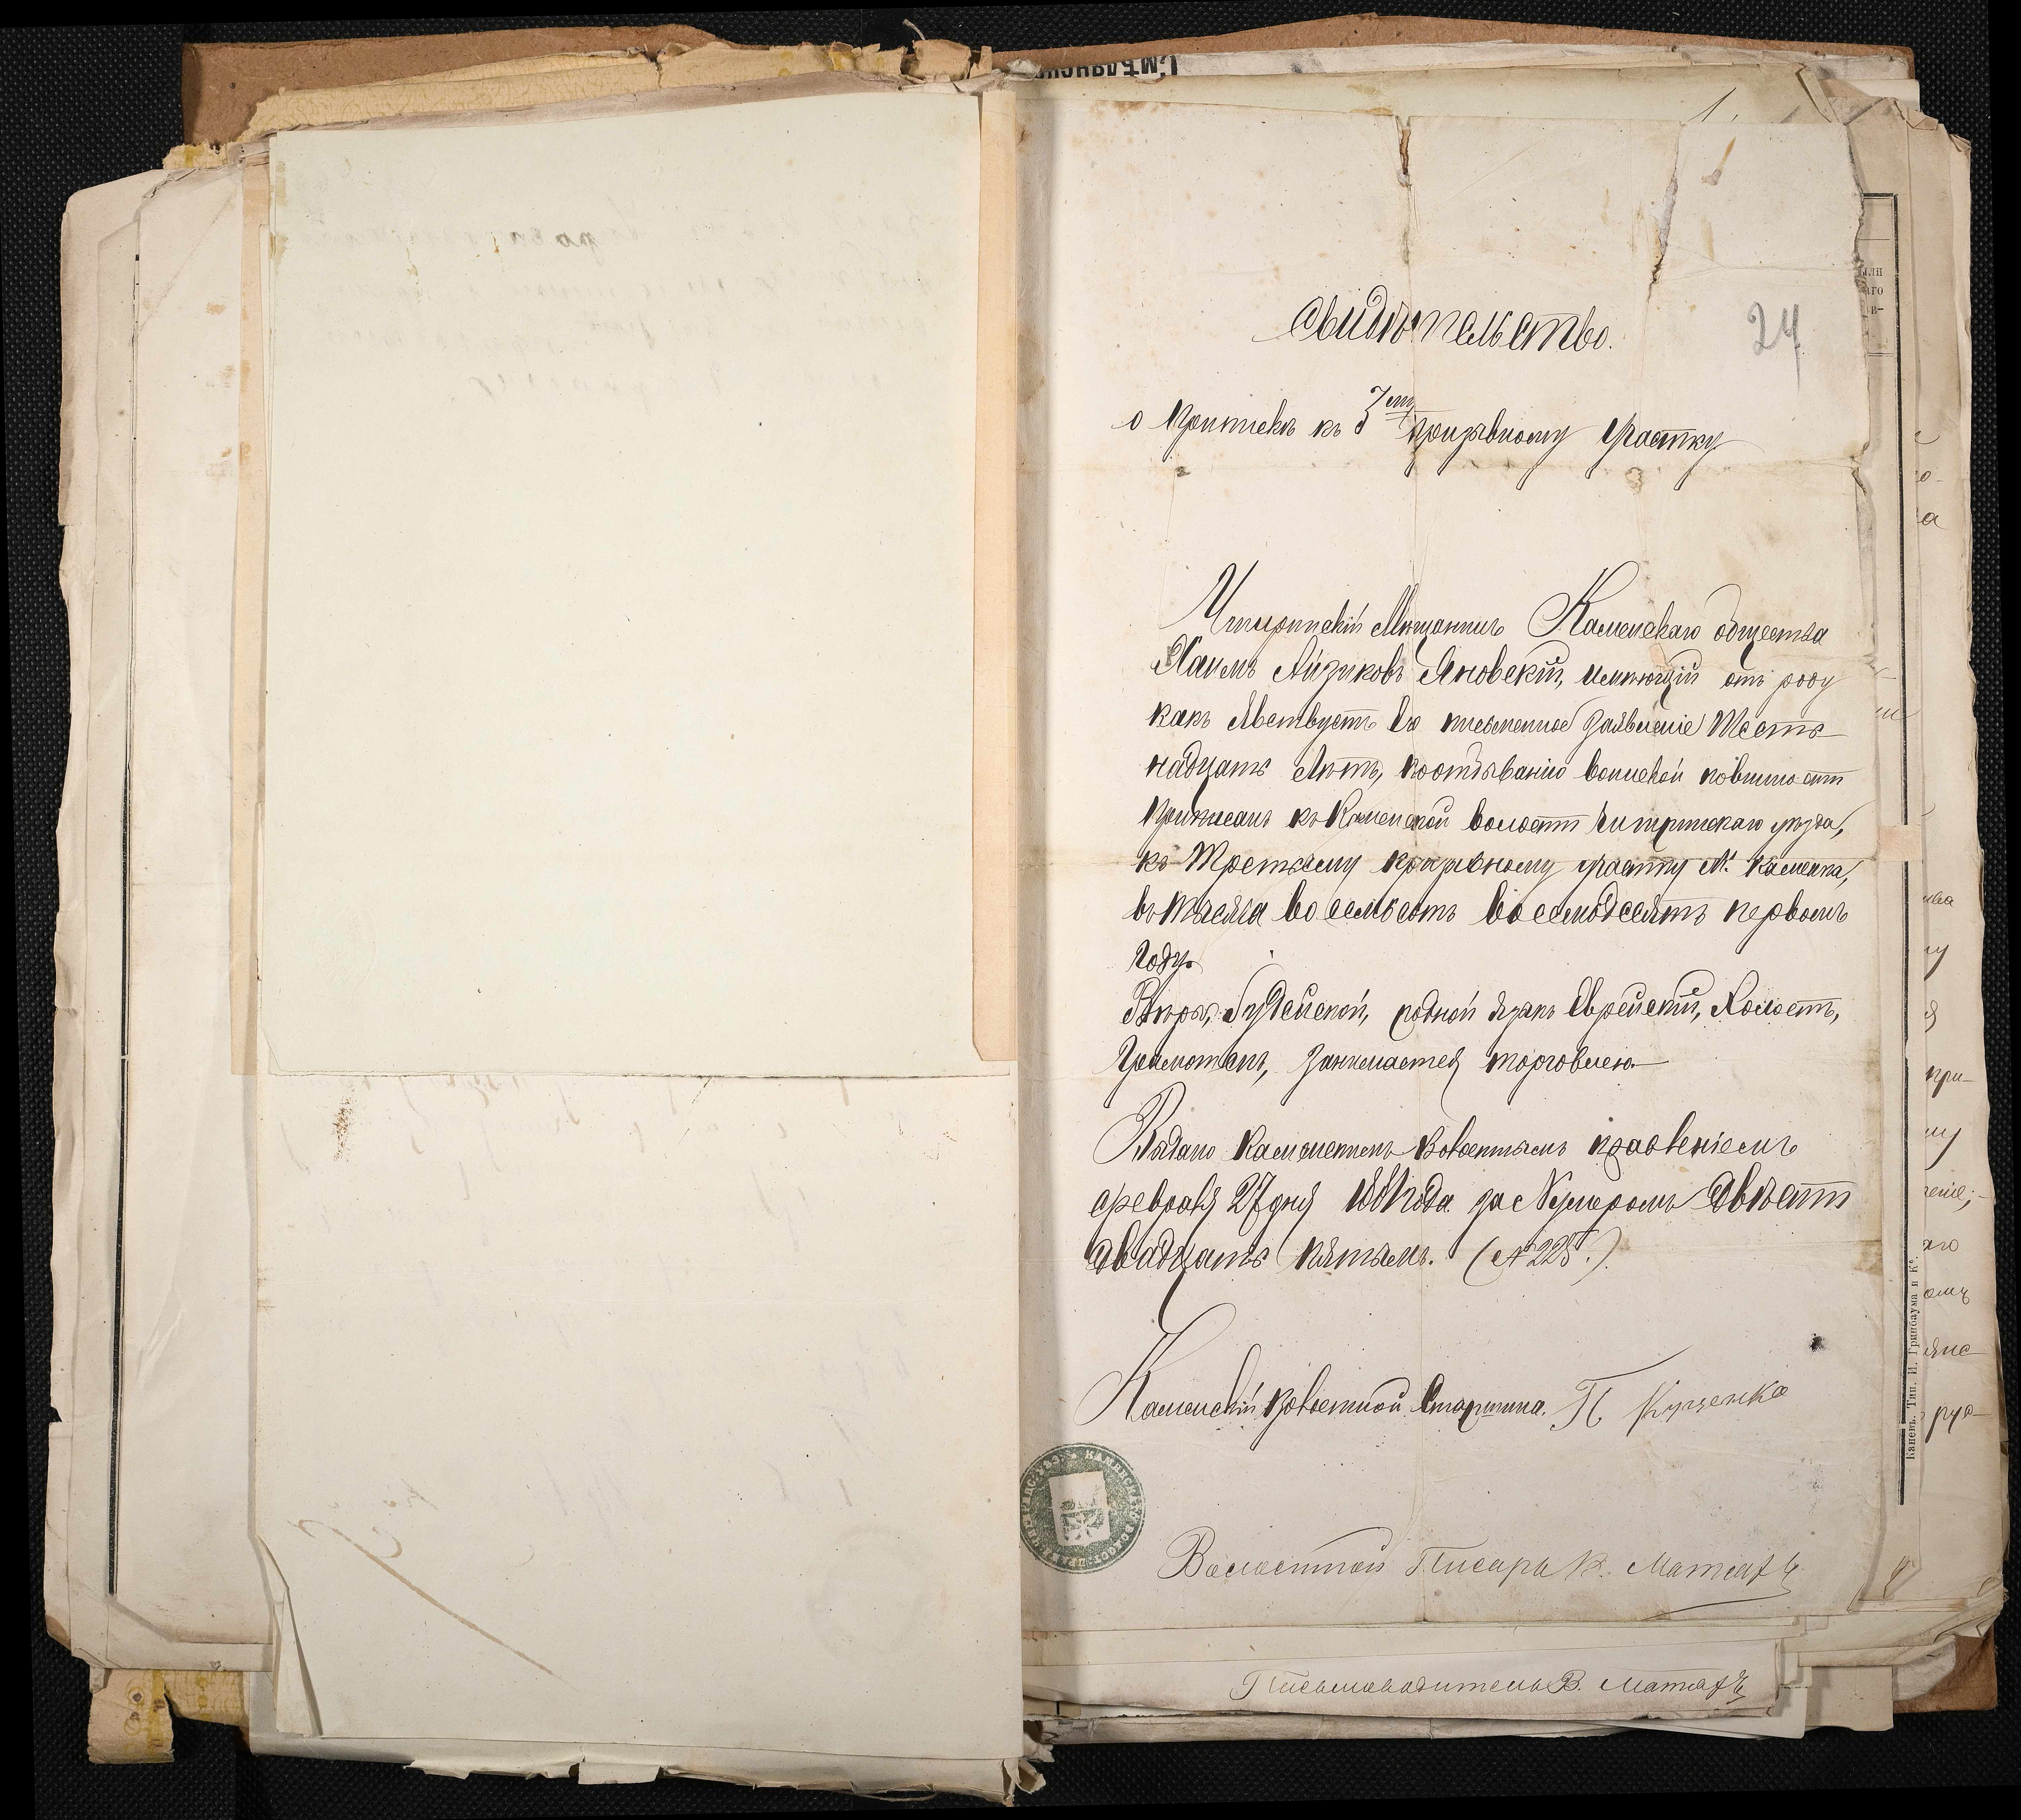 1.
24
Свидѣтельство.
о припискѣ къ 3ему призывному участку
Чигиринскій Мѣщанинъ Каменскаго общества
Хаимъ Айзиковъ Яновскій, имѣющій отъ роду
какъ явствуетъ его письменное заявленіе Шест-
надцать Лѣтъ, поотбыванію воинской повинности
приписанъ къ Каменской волости Чигиринскаго уѣзда,
къ Третьему призывному участку М. Каменка,
въ тысяча восемьсотъ восемьдесятъ первомъ
году.
Вѣры Іудейской, родной языкъ Еврейскій, Холостъ,
Грамотенъ, занимается торговлею.
Выдано Каменскимъ Волостнымъ правленіемъ
февраля 27 дня 1881 года за Нумеромъ Двѣсти
двадцать пятымъ. (№ 225.)
Каменскій Волостной Старшина. П Куценко
Волостной Писарь В.
Письмоводитель В.
Каневъ. Тип. И. Гринбаума и К°.